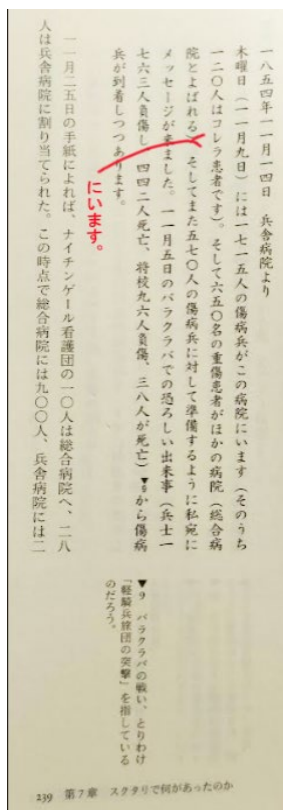 一八五四年一一月一四日　兵舎病院より
木曜日（一一月九日）には一七一五人の傷病兵がこの病院にいます（そのうち
一二〇人はコレラ患者です）。そして六五〇名の重傷患者がほかの病院（総合病
院とよばれる）。そしてまた五七〇人の傷病兵に対して準備するように私宛に
メッセージが来ました。一一月五日のバラクラバでの恐ろしい出来事（兵士一
七六三人負傷し、四四二人死亡、将校九六人負傷、三八人が死亡）▼9から傷病
兵が到着しつつあります。
にいます。
一一月二五日の手紙によれば、ナイチンゲール看護団の一〇人は総合病院へ、二八
人は兵舎病院に割り当てられた。この時点で総合病院には九〇〇人、兵舎病院には二
▼9　バラクラバの戦い、とりわけ
「軽騎兵旅団の突撃」を指している
のだろう。
239　第7章　スクタリで何があったのか